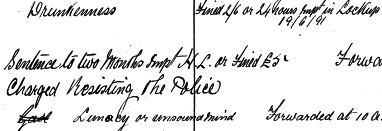 Drunkenness Fined 2/6 or 24 hours Impt in Lockup
19/6/91
Sentence to two Months Impt H.L. or Fined £5 Forwa
Charged Resisting the Police
Lunacy or unsound mind Forwarded at 10 a.